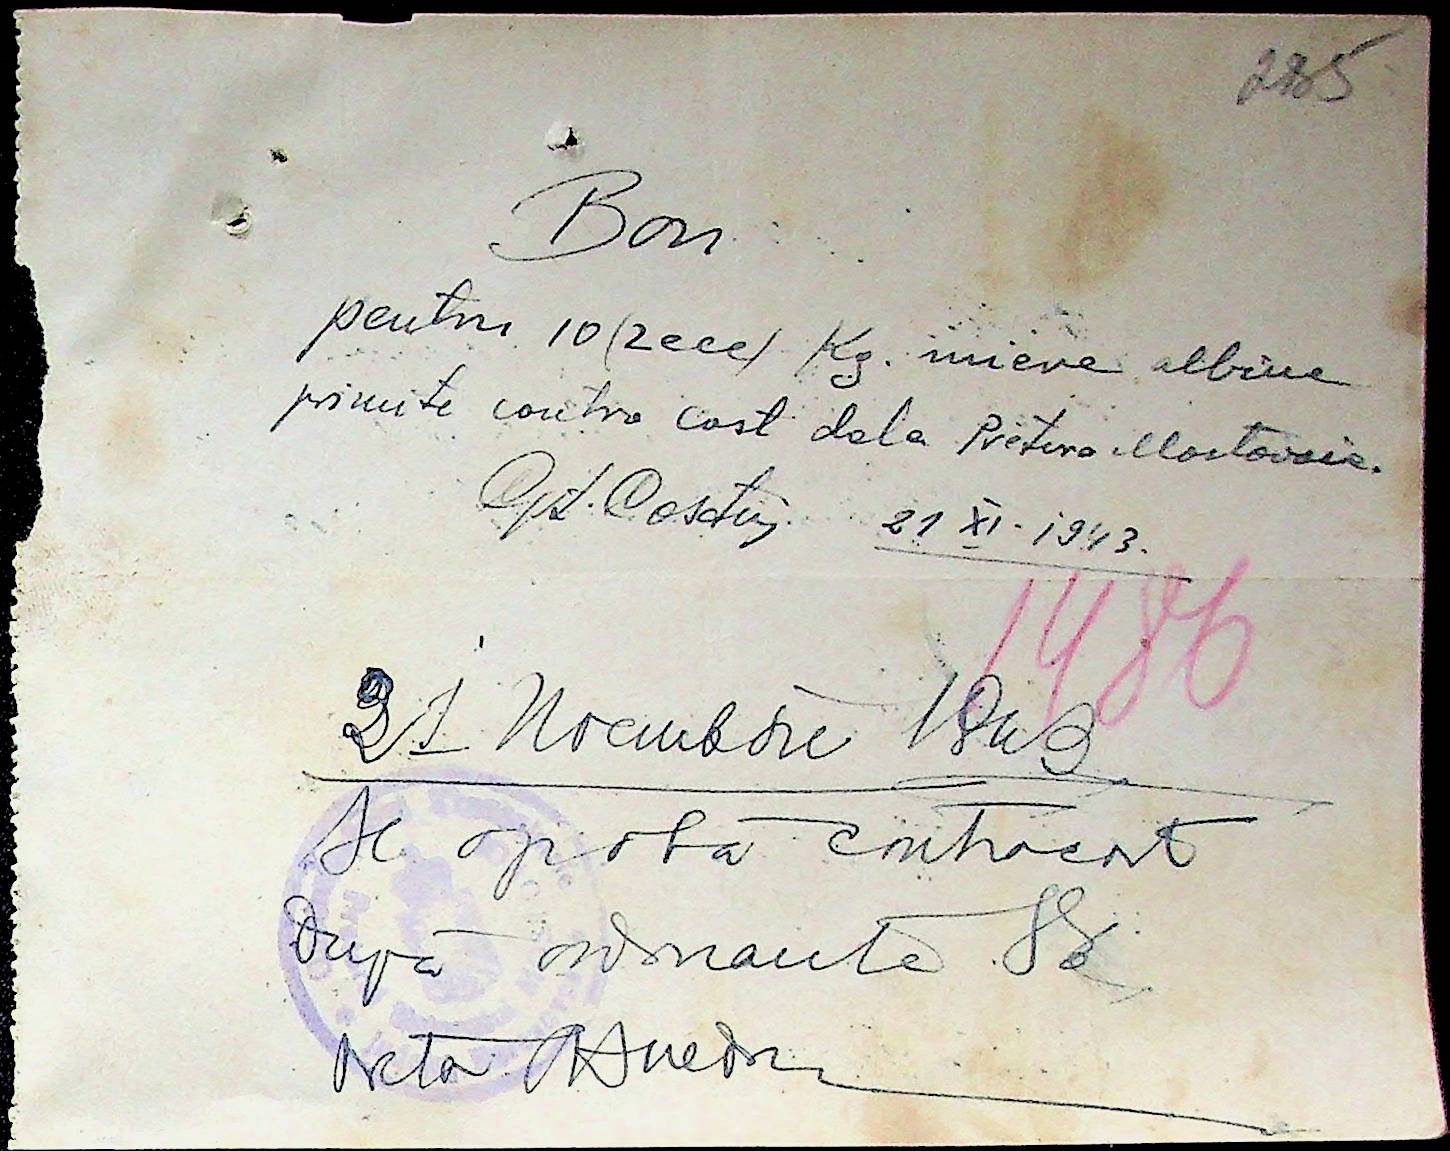 285
Bon
pentru 10 (zece) Kg. miere albine
primite contra cost dela Pretura Mostovoie.
Cpt. Costin 21 XI. 1943.
1486
21 Noembrie 1943
Se aprobă contracost
După ordonanta 88